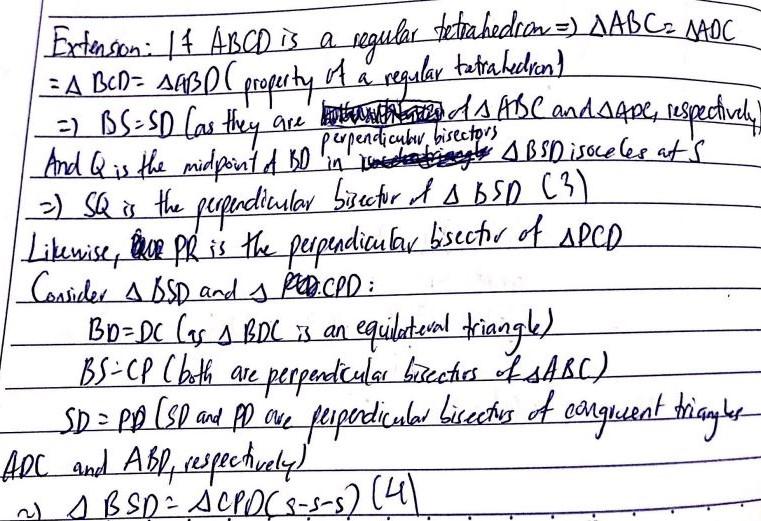 Extension: If ABCD is a regular tetrahedron => ΔABC = ΔADC
= Δ BCD = ΔABD ( property of a regular tetrahedron)
=> BS=SD (as they are perpendicular bisectors of Δ ABC and ΔADC, respectively)
And Q is the midpoint of BD in ΔBSD isoceles at S
=> SQ is the perpendicular bisector of Δ BSD (3)
Likewise, PR is the perpendicular bisector of ΔPCD
Consider Δ BSD and Δ CPD:
BD=DC (as Δ BDC is an equilateral triangle)
BS=CP (both are perpendicular bisectors of ΔABC)
SD = PD (SD and PD are perpendicular bisectors of congruent triangles
ADC and ABD, respectively)
=> Δ BSD = ΔCPD (s-s-s) (4)